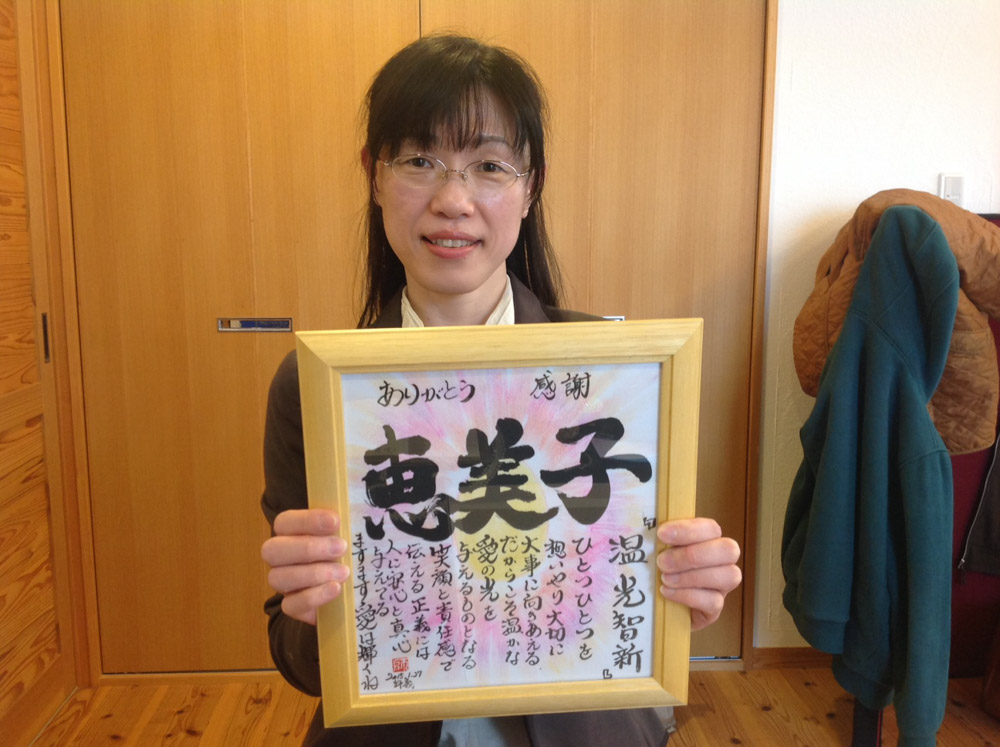 ありがとう　感謝
恵美子
『温光智新』
ひとつひとつを
想いやり大切に
大事に向きあえる
だからこそ温かな
愛の光を
与えるものとなる
笑顔と責任感で
伝える正義には
人に安心と真心
与えてる
ますます愛は輝くね
2015.1.27